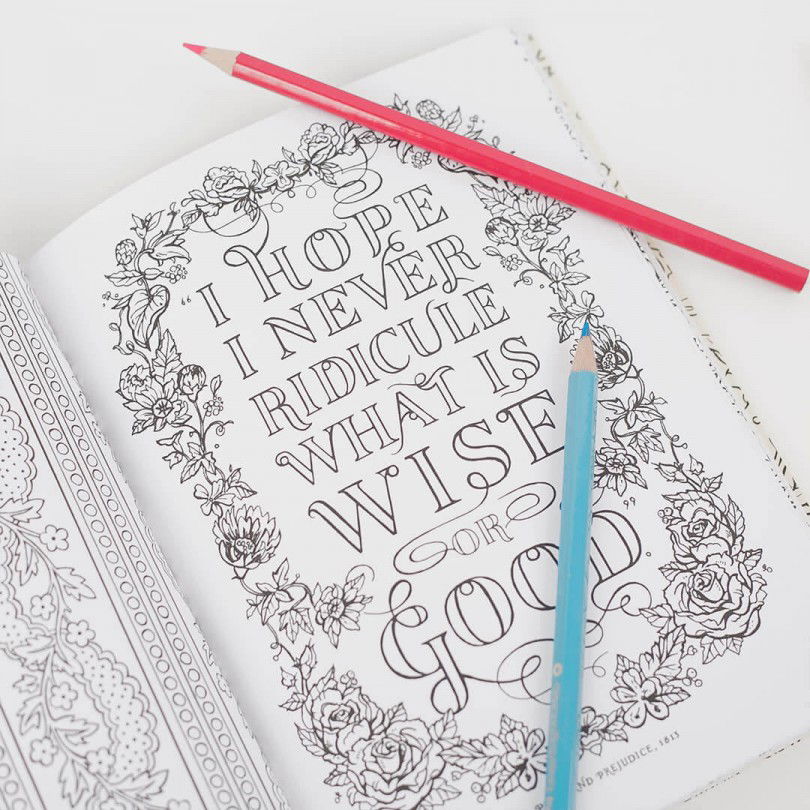 “ I HOPE
I NEVER
RIDICULE
WHAT IS
WISE
OR
GOOD. ”
AND PREJUDICE, 1813